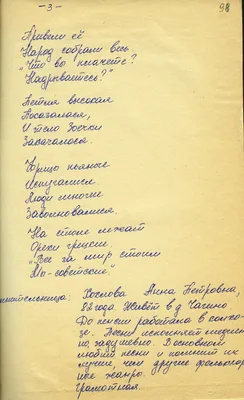 - 3 -
98
Привели её
Народ собрали весь
"Что вы плачете?
Надрываетесь?"
Петля высокая
Показалася,
И тело Зоечки
Закачалося.
Фрицы пьяные
Испугалися
Люди многие
Заволновалися.
На столе лежат
Орехи грецкие,
"Все за мир стоим
Мы - советские."
Хохлова Анна Петровна,
83 года. Живёт в д. Чагино
До пенсии работала в совхо-
зе. Песни исполняет медлен-
но, задушевно. В основном
любит песни и помнит их
лучше, чем другие фольклор-
ные жанры.
Грамотная.